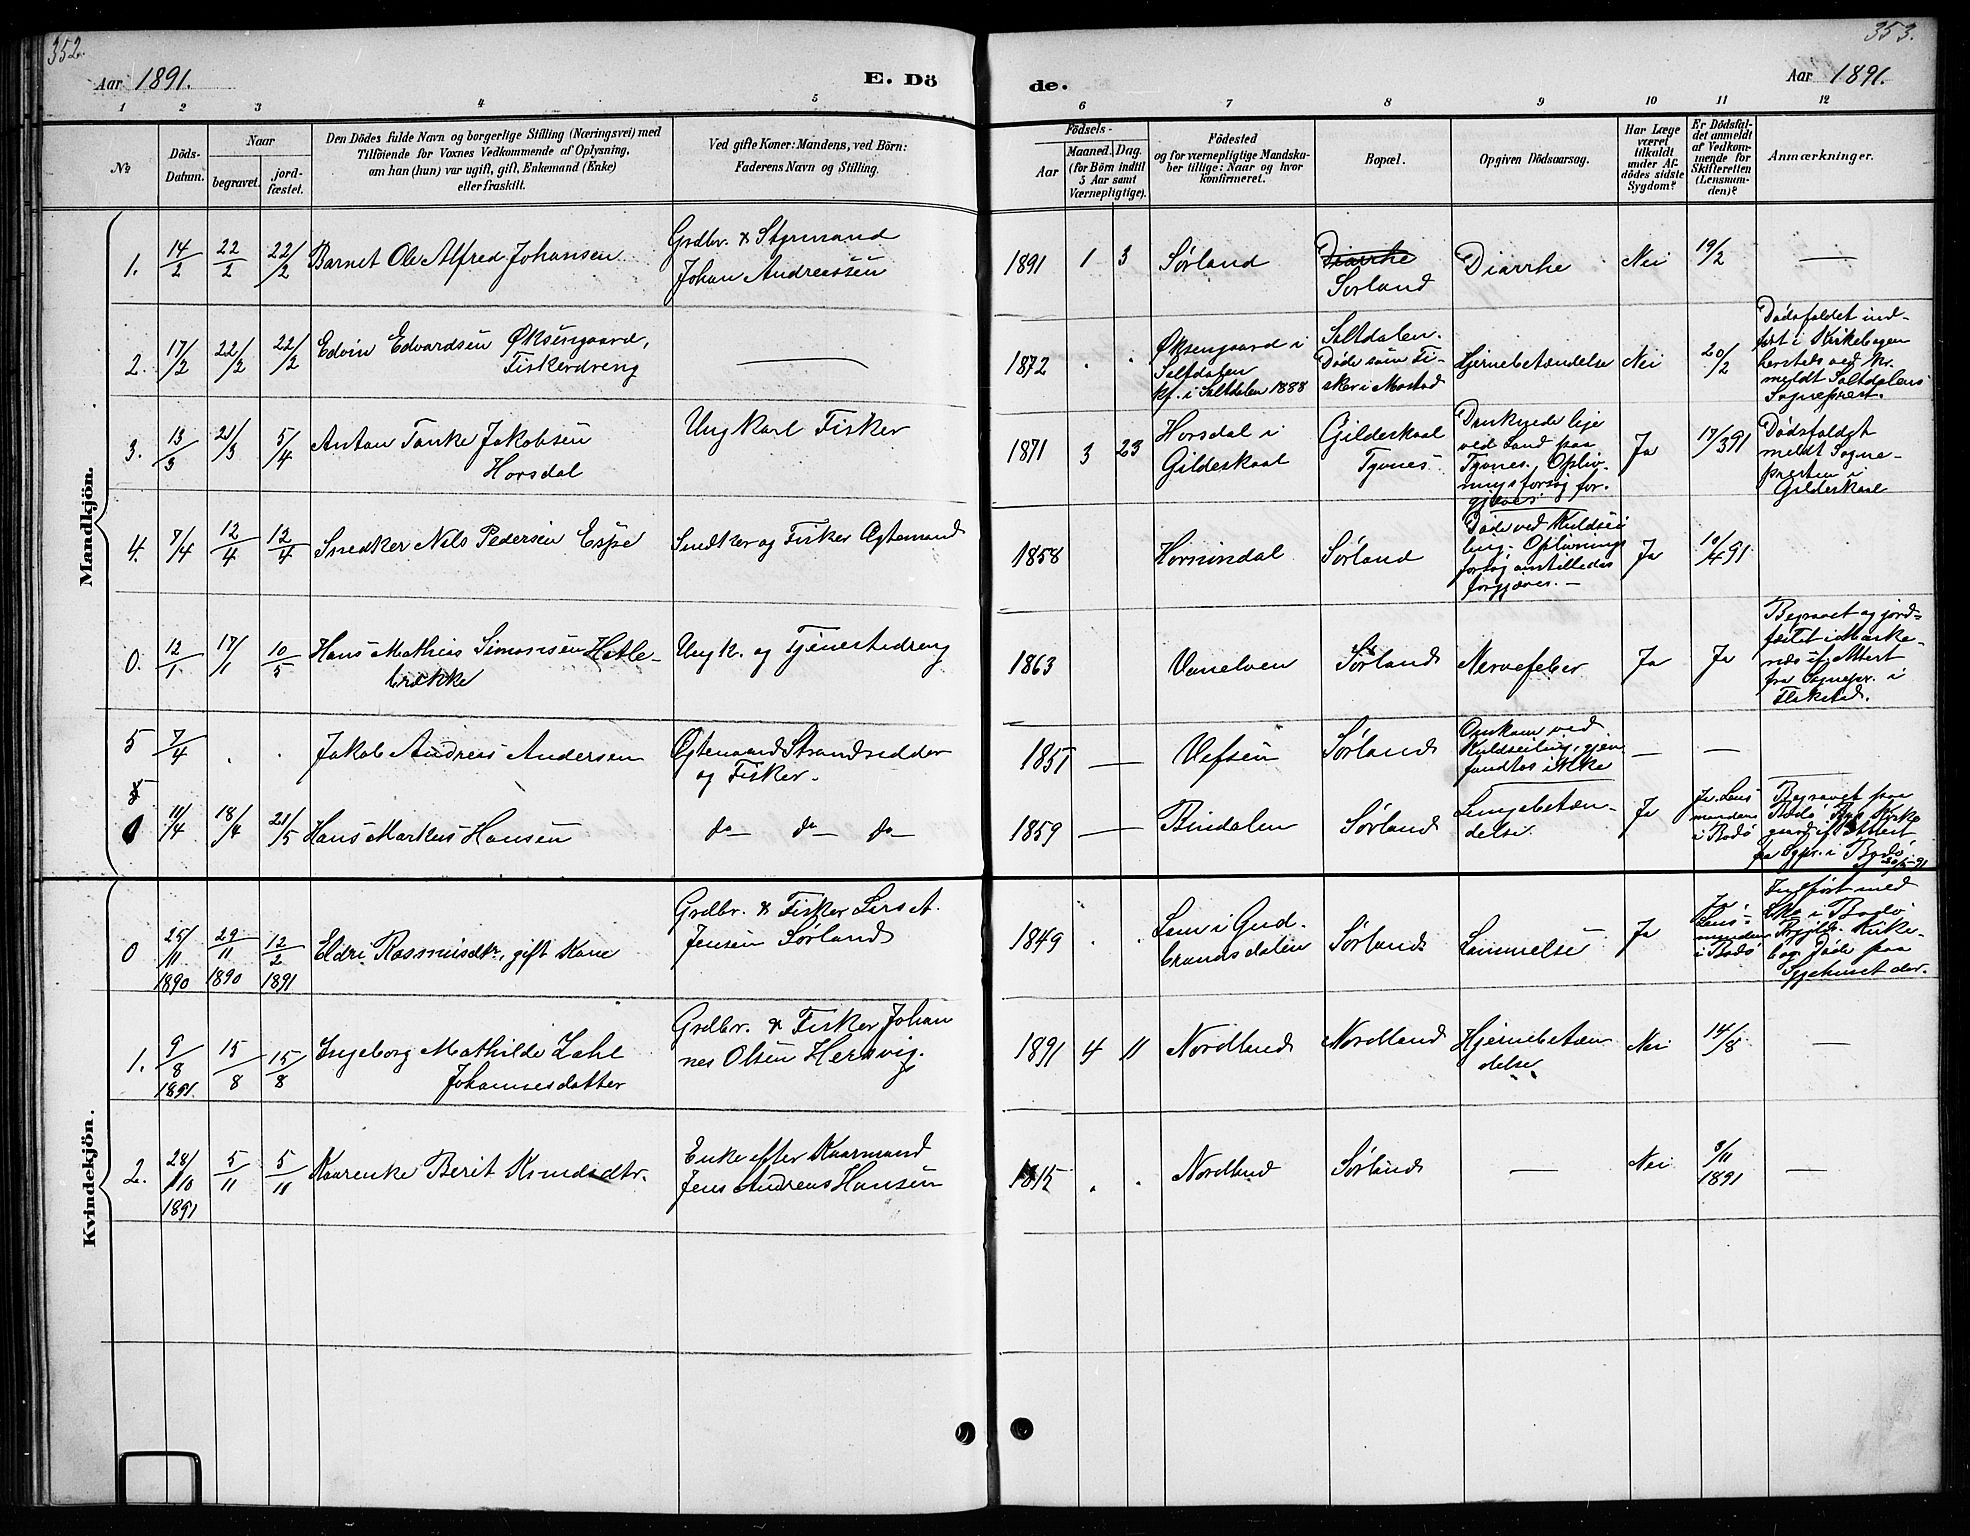 352.
353.
Aar 1891.
E. Dö
de.
Aar 1891.
1 2 3 4 5
6 7 8 9 10 11 12
№
Döds-
Datum.
Naar
begravet.
jord-
fæstet.
Den Dödes fulde Navn og borgerlige Stilling (Næringsvei) med
Tilföiende for Voxnes Vedkommende af Oplysning,
om han (hun) var ugift, gift, Enkemand (Enke)
eller fraskilt.
Ved gifte Koner: Mandens, ved Börn:
Faderens Navn og Stilling.
Födsels-
Aar
Maaned. Dag.
(for Börn indtil
5 Aar samt
Værnepligtige).
Födested
og for værnepligtige Mandska-
ber tillige: Naar og hvor
konfirmeret.
Bopæl.
Opgiven Dödsaarsag.
Har Læge
været
tilkaldt
under Af-
dödes sidste
Sygdom?
Er Dödsfal-
det anmeldt
af Vedkom-
mende for
Skifteretten
(Lensman-
den)?
Anmærkninger.
Mandkjön.
1. 14/2 22/2 22/2 Barnet Ole Alfred Johansen
Grdbr. & Styrmand
Johan Andreassen
1891 1 3 Sørland
Diarrhe
Sørland
Diarrhe Nei 19/2 —
2. 17/2 22/2 22/2 Edvin Edvardsen Øksengaard,
Fiskerdreng
—
1872 . .
Øksengaard i
Saltdalen
kf. i Saltdalen 1888
Saltdalen.
Døde som Fi-
sker i Mostad
Hjernebetændelse Nei 20/2
Dødsfaldet ind-
ført i Kirkebogen
meldt Saltdalens
Sogneprest.
3. 13/3 21/3 5/4 Anton Tanke Jakobsen
Horsdal
Ungkarl Fisker
1871 3 23
Horsdal i
Gildeskaal
Gildeskaal
Tyvnes
Druknede lige
ved Land paa
Tyvnes. Opliv-
ningsforsøg for-
gjæves.
Ja 17/3 91
Dødsfaldet
meldt Sogne-
presten i
Gildeskaal
4. 7/4 12/4 12/4 Snedker Nils Pedersen Espe
Snedker og Fisker Ægtemand
1858 Hornindal Sørland
Døde ved Kuldsei
ling. Oplivnings
forsøg anstilledes
forgjæves. —
Ja 10/4 91
0. 12/1 17/1 10/5 Hans Mathias Simonsen Hatle-
brække
Ungk. og Tjenestedreng
1863 Vanelven Sørland Nervefeber Ja Ja
Begravet og jord-
fæstet i Marke-
næs if. Attest
fra Sognepr. i
Flakstad.
5 7/4 . . Jakob Andreas Andersen
Ægtemand Strandsidder
og Fisker.
1851 — Vefsen Sørland
Omkom ved
Kuldseiling, gjen
fandtes ikke
— —
11/4 18/4 21/5 Hans Markus Hansen
do do do
1859 — Bindalen Sørland
Lungebetæn-
delse.
Ja
Ja. Lens
manden
i Bodø
Begravet paa
Bodø Bys Kirke
gaard if. Attest
fra Sgpr. i Bodø
Kvindekjön.
0 25/11 1890 29/11 1890 12/2 1891 Eldri Rasmusdtr., gift Kone
Grdbr. & Fisker Lars A.
Jensen Sørland
1849 . .
Lom i Gud
brandsdalen
Sørland Lammelse Ja
Ja,
Lens-
manden
i Bodø
Indført med
No i Bodø
Kirke-
bog. Døde paa
Sygehuset der.
1. 9/8 1891 15/8 15/8 Ingeborg Mathilde Lahl
Johannesdatter
Grdbr. & Fisker Johan
nes Olsen Hernvig.
1891 4 11 Nordland Nordland
Hjernebetæn
delse
Nei 14/8 —
2. 28/10 1891 5/11 5/11 Karenke Berit Knudsdtr.
Enke efter Kaarmand
Jens Andreas Hansen
1815 . . Nordland Sørland — Nei 3/11 1891 —